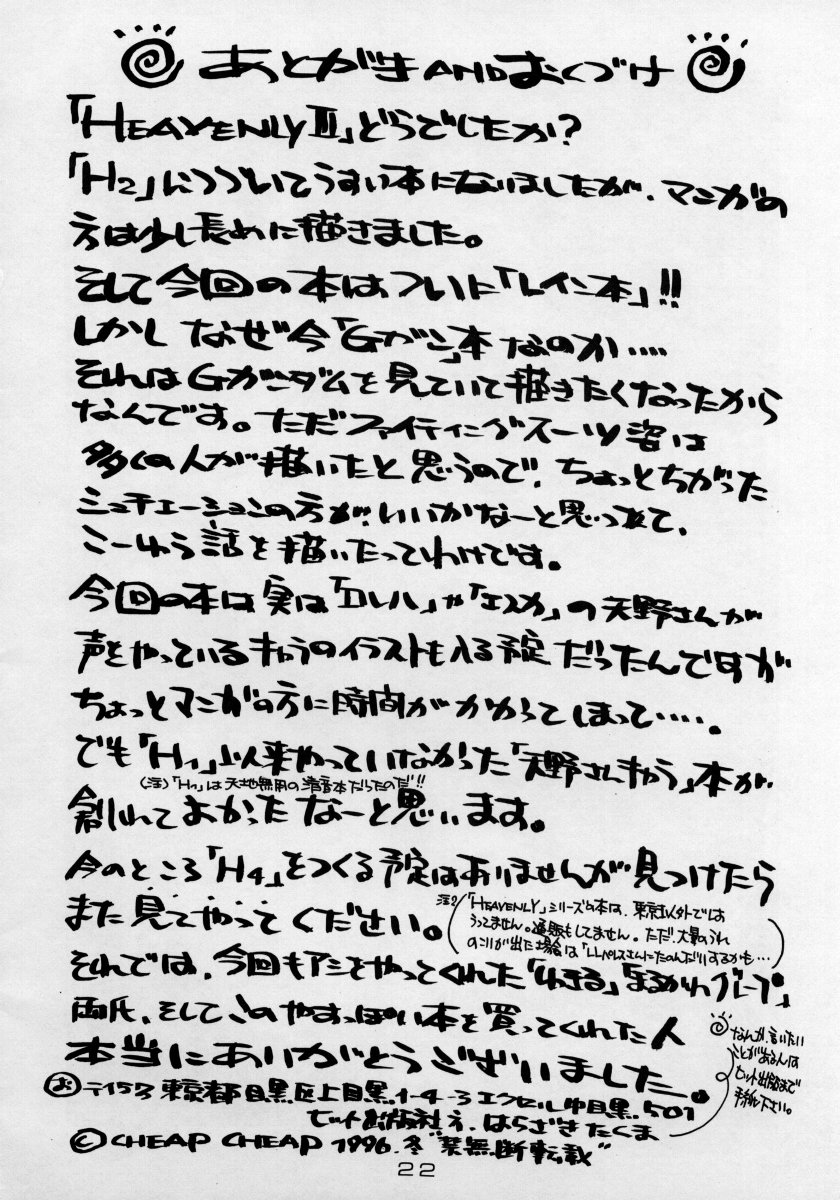 あとがき ANDおくづけ
「HEAVENLY Ⅲ」どうでしたか?
「H2」につづいてうすい本になりましたが、マンガの
方は少し長めに描きました。
そして今回の本はついに「レイン本」!!
しかし なぜ今「Gガン」本 なのか‥‥
それはGガンダムを見ていて描きたくなったから
なんです。ただファイティングスーツ姿は
多くの人が描いたと思うので、ちょっとちがった
シュチェーションの方が、いいかなーと思つれて、
こーゆう話を描いたってわけです。
今回の本は実は「ロレル」や「エスカ」の天野さんが
声をやっているキャラのイラストも入る予定だったんですが
ちょっとマンガの方に時間がかかってしまって‥‥。
でも「H1」以来やっていなかった「天野さんキャラ」本が
(注)「H1」は天地無用の清音本だったのだ!!
創れてよかったなーと思います。
今のところ「H4」をつくる予定はありませんが見つけたら
また見てやってください。
注2(「HEAVENLY」シリーズの本は、東京以外では
うってません。通販もしてません。ただ、大量のうれ
のこりが出た場合は「LLパレスさん」にたのんだりするかも…)
それでは、今回もアシをやってくれた「わきる」「まるかわグループ」
両氏、そしてこのやすっぽい本を買ってくれた人
本当にありがとうございました。
なんか、言いたい
ことがある人は
ヒット出版まで
手紙下さい。
お 〒153 東京都目黒区上目黒1-4-3エクセル中目黒501
ヒット出版社方、はらざきたくま
© CHEAP CHEAP 1996.冬 "禁無断転載"
22